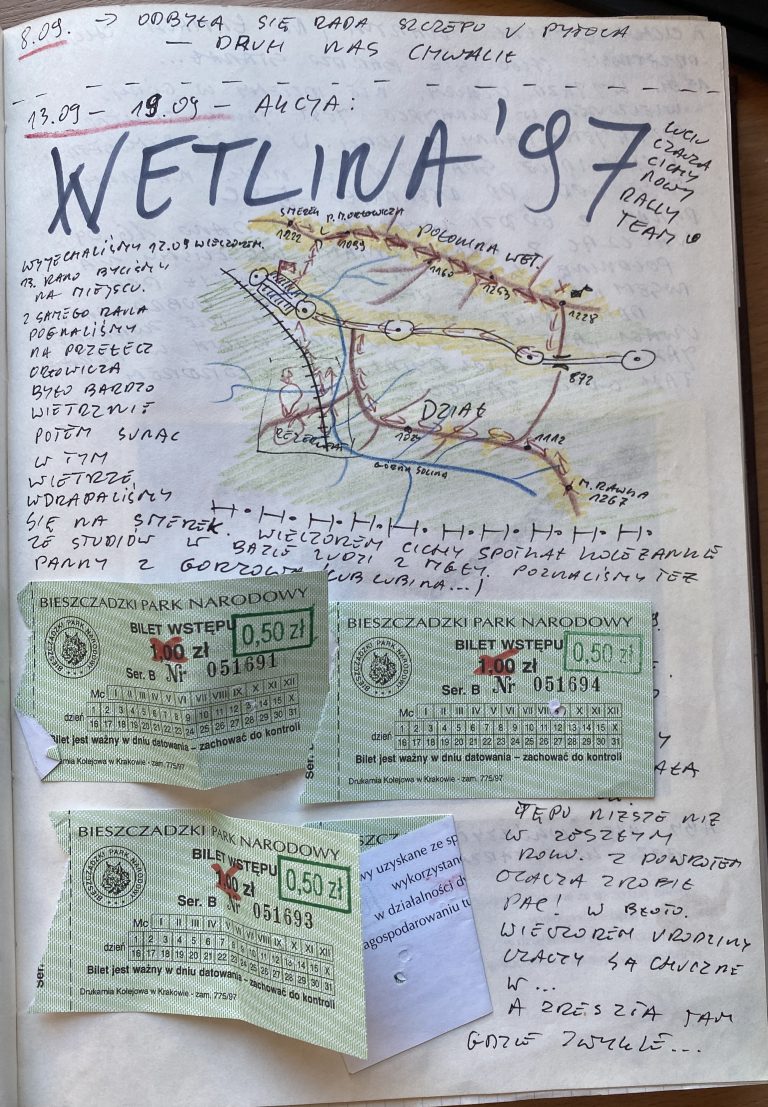 8.09. → ODBYŁA SIĘ RADA SZCZEPU W
— DRUH NAS CHWALIŁ
13.09 – 19.09 – AKCJA:
WETLINA '97
LUCIU
CZACZA
CICHY
NOWY
RALLY
TEAM
WYJECHALIŚMY 12.09 WIECZOREM.
13. RANO BYLIŚMY
NA MIEJSCU.
Z SAMEGO RANA
POGNALIŚMY
NA PRZEŁĘCZ
ORŁOWICZA
BYŁO BARDZO
WIETRZNIE
POTEM SUNĄC
W TYM
WIETRZE
WDRAPALIŚMY
SIĘ NA SMEREK. WIECZOREM CICHY SPOTKAŁ KOLEŻANKĘ
ZE STUDIÓW W BAZIE LUDZI Z MGŁY. POZNALIŚMY TEŻ
PANNY Z GORZOWA (LUB LUBINA...)
SMEREK
1222
P. M. ORŁOWICZA
1099
POŁONINA WET.
1160
1253
1228
872
DZIAŁ
1112
M. RAWKA
1267
GÓRNA SOLINA
BIESZCZADZKI PARK NARODOWY
BILET WSTĘPU
1,00 zł
0,50 zł
Ser. B Nr 051691
Mc I II III IV V VI VII VIII IX X XI XII
dzień 1 2 3 4 5 6 7 8 9 10 11 12 13 14 15 X
16 17 18 19 20 21 22 23 24 25 26 27 28 29 30 31
Bilet jest ważny w dniu datowania – zachować do kontroli
Drukarnia Kolejowa w Krakowie - zam. 775/97
BIESZCZADZKI PARK NARODOWY
BILET WSTĘPU
1,00 zł
0,50 zł
Ser. B Nr 051694
Mc I II III IV V VI VII VIII IX X XI XII
dzień 1 2 3 4 5 6 7 8 9 10 11 12 13 14 15 X
16 17 18 19 20 21 22 23 24 25 26 27 28 29 30 31
Bilet jest ważny w dniu datowania – zachować do kontroli
Drukarnia Kolejowa w Krakowie - zam. 775/97
Ser. B
BIESZCZADZKI PARK NARODOWY
BILET WSTĘPU
1,00 zł
0,50 zł
Ser. B Nr 051693
Mc I II III IV V VI VII VIII IX X XI XII
dzień 1 2 3 4 5 6 7 8 9 10 11 12 13 14 15 X
16 17 18 19 20 21 22 23 24 25 26 27 28 29 30 31
Bilet jest ważny w dniu datowania – zachować do kontroli
Drukarnia Kolejowa w Krakowie - zam. 775/97
Ser.
BIESZCZ
wy uzyskane ze sp
wykorzystane
w działalności dy
agospodarowaniu tu
TĘPU NIŻSZE NIŻ
W ZESZŁYM
ROKU. Z POWROTEM
CZACZA ZROBIŁ
PAC! W BŁOTO.
WIECZOREM URODZINY
CZACZY SĄ HUCZNE
W...
A ZRESZTĄ TAM
GDZIE ZWYKLE...